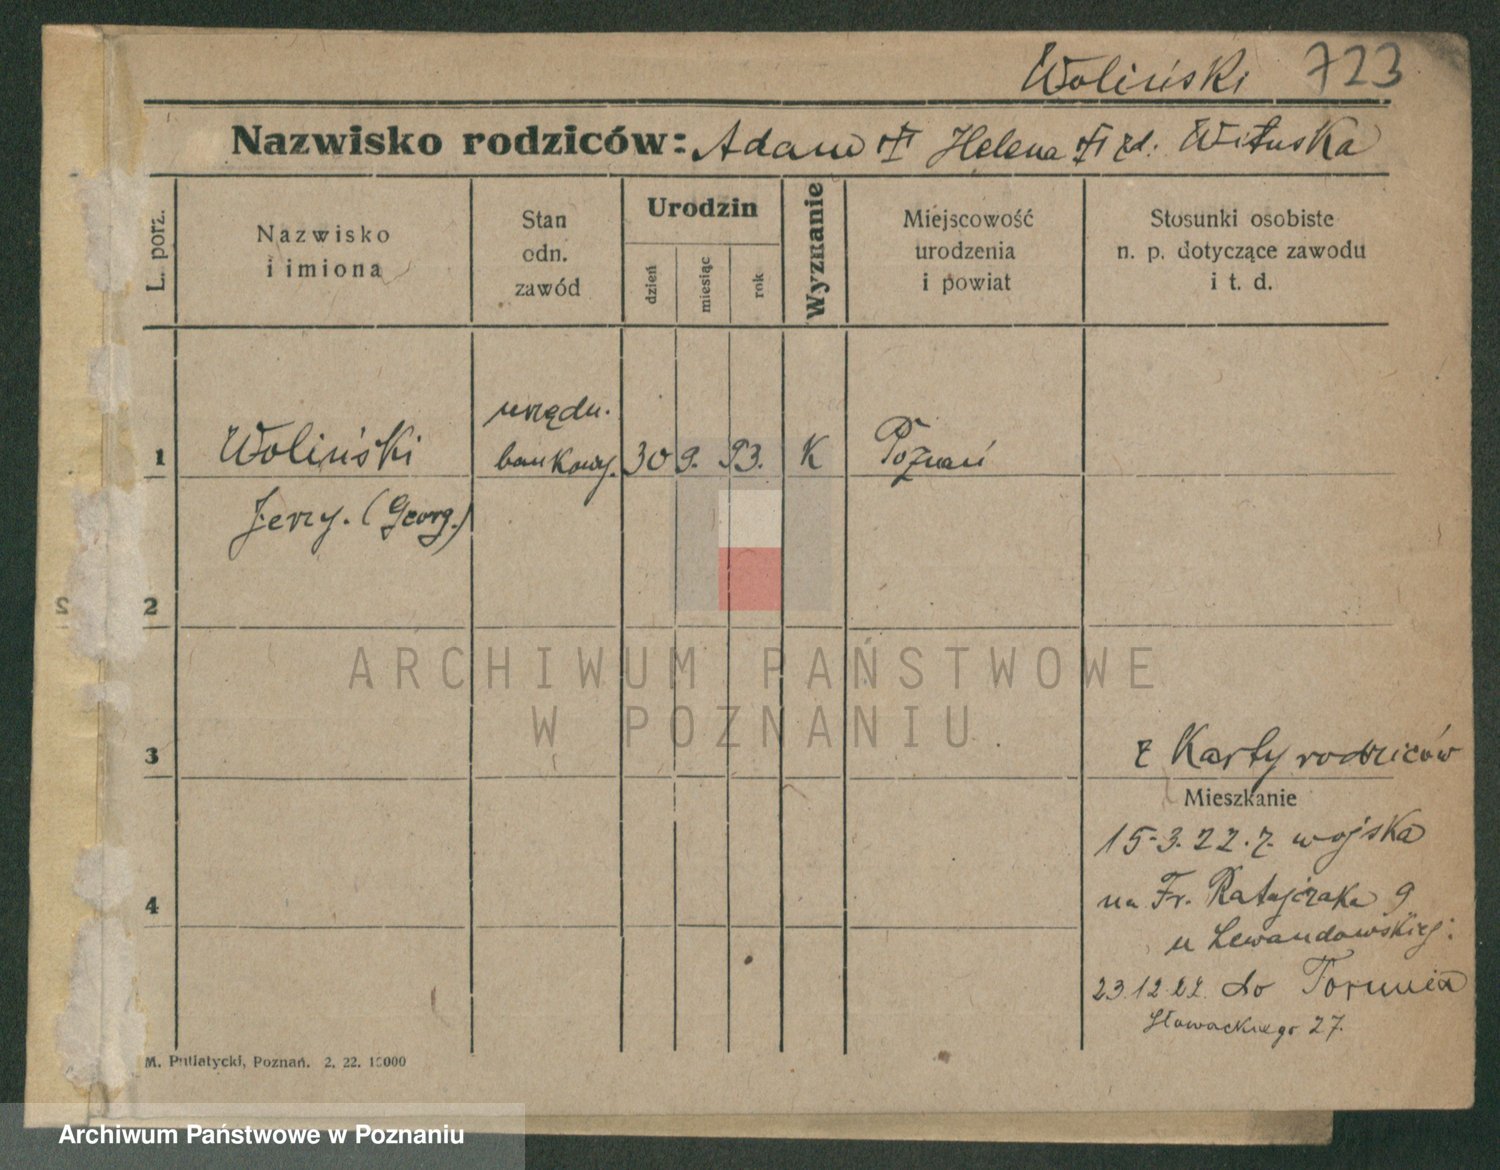 Woliński 723
Nazwisko rodziców: Adam Helena zd. Wituska
L. porz.
Nazwisko
i imiona
Stan
odn.
zawód
Urodzin
dzień
miesiąc
rok
Wyznanie
Miejscowość
urodzenia
i powiat
Stosunki osobiste
n. p. dotyczące zawodu
i t. d.
urzędn.
1 Woliński bankowy. 30 9. 93. K Poznań
Jerzy. (Georg.)
2
ARCHIWUM PAŃSTWOWE
W POZNANIU
3
z Karty rodziców
Mieszkanie
15.3.22. z. wojska
4
na Fr. Ratajczaka 9
u Lewandowskiej:
23.12.22. do Torunia
Słowackiego 27.
M. Putiatycki, Poznań. 2. 22. 10000
Archiwum Państwowe w Poznaniu